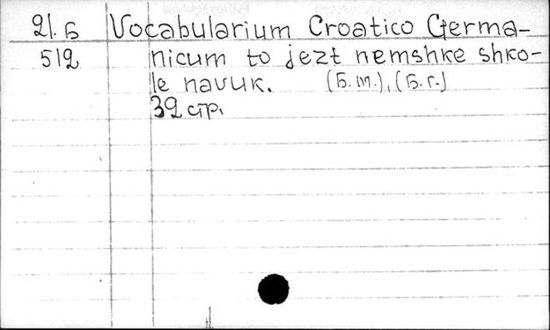 21.Б Vocabularium Croatico Germa-
512 nicum to jezt nemshke shko-
le navuk. (Б.m.), (Б.г.)
32 стр.